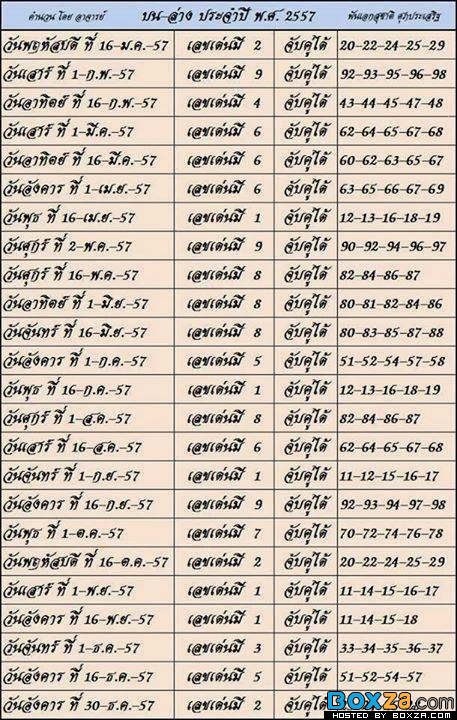 คำนวน โดย อาจารย์ บน-ล่าง ประจำปี พ.ศ. 2557 พันเอกสุชาติ ศุภประเสริฐ
วันพฤหัสบดี ที่ 16-ม.ค.-57 เลขเด่นมี 2 จับคู่ได้ 20-22-24-25-29
วันเสาร์ ที่ 1-ก.พ.-57 เลขเด่นมี 9 จับคู่ได้ 92-93-95-96-98
วันอาทิตย์ ที่ 16-ก.พ.-57 เลขเด่นมี 4 จับคู่ได้ 43-44-45-47-48
วันเสาร์ ที่ 1-มี.ค.-57 เลขเด่นมี 6 จับคู่ได้ 62-64-65-67-68
วันอาทิตย์ ที่ 16-มี.ค.-57 เลขเด่นมี 6 จับคู่ได้ 60-62-63-65-67
วันอังคาร ที่ 1-เม.ย.-57 เลขเด่นมี 6 จับคู่ได้ 63-65-66-67-69
วันพุธ ที่ 16-เม.ย.-57 เลขเด่นมี 1 จับคู่ได้ 12-13-16-18-19
วันศุกร์ ที่ 2-พ.ค.-57 เลขเด่นมี 9 จับคู่ได้ 90-92-94-96-97
วันศุกร์ ที่ 16-พ.ค.-57 เลขเด่นมี 8 จับคู่ได้ 82-84-86-87
วันอาทิตย์ ที่ 1-มิ.ย.-57 เลขเด่นมี 8 จับคู่ได้ 80-81-82-84-86
วันจันทร์ ที่ 16-มิ.ย.-57 เลขเด่นมี 8 จับคู่ได้ 80-83-85-87-88
วันอังคาร ที่ 1-ก.ค.-57 เลขเด่นมี 5 จับคู่ได้ 51-52-54-57-58
วันพุธ ที่ 16-ก.ค.-57 เลขเด่นมี 1 จับคู่ได้ 12-13-16-18-19
วันศุกร์ ที่ 1-ส.ค.-57 เลขเด่นมี 8 จับคู่ได้ 82-84-86-87
วันเสาร์ ที่ 16-ส.ค.-57 เลขเด่นมี 6 จับคู่ได้ 62-64-65-67-68
วันจันทร์ ที่ 1-ก.ย.-57 เลขเด่นมี 1 จับคู่ได้ 11-12-15-16-17
วันอังคาร ที่ 16-ก.ย.-57 เลขเด่นมี 9 จับคู่ได้ 92-93-94-97-98
วันพุธ ที่ 1-ต.ค.-57 เลขเด่นมี 7 จับคู่ได้ 70-72-74-76-78
วันพฤหัสบดี ที่ 16-ต.ค.-57 เลขเด่นมี 2 จับคู่ได้ 20-22-24-25-29
วันเสาร์ ที่ 1-พ.ย.-57 เลขเด่นมี 1 จับคู่ได้ 11-14-15-16-17
วันอังคาร ที่ 16-พ.ย.-57 เลขเด่นมี 1 จับคู่ได้ 11-14-15-18
วันจันทร์ ที่ 1-ธ.ค.-57 เลขเด่นมี 3 จับคู่ได้ 33-34-35-36-37
วันอังคาร ที่ 16-ธ.ค.-57 เลขเด่นมี 5 จับคู่ได้ 51-52-54-57
วันอังคาร ที่ 30-ธ.ค.-57 เลขเด่นมี 2 จับคู่ได้
BOXZA.com
HOSTED BY BOXZA.COM